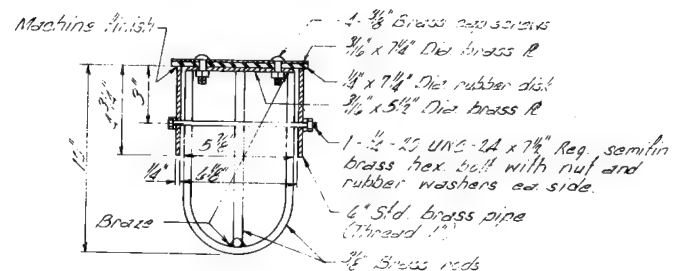 Machine finish
4-3/8" Brass cap screws
3/16" x 7 1/4" Dia. brass ℞
1/4" x 7 1/4" Dia. rubber disk
3/16" x 5 1/2" Dia. brass ℞
3"
1/4"
1-1/4-20 UNC-2A x 7 1/2" Reg. semifin
brass hex. bolt with nut and
rubber washers ea. side.
6" Std. brass pipe
(Thread 1")
Braze
3/8" Brass rods